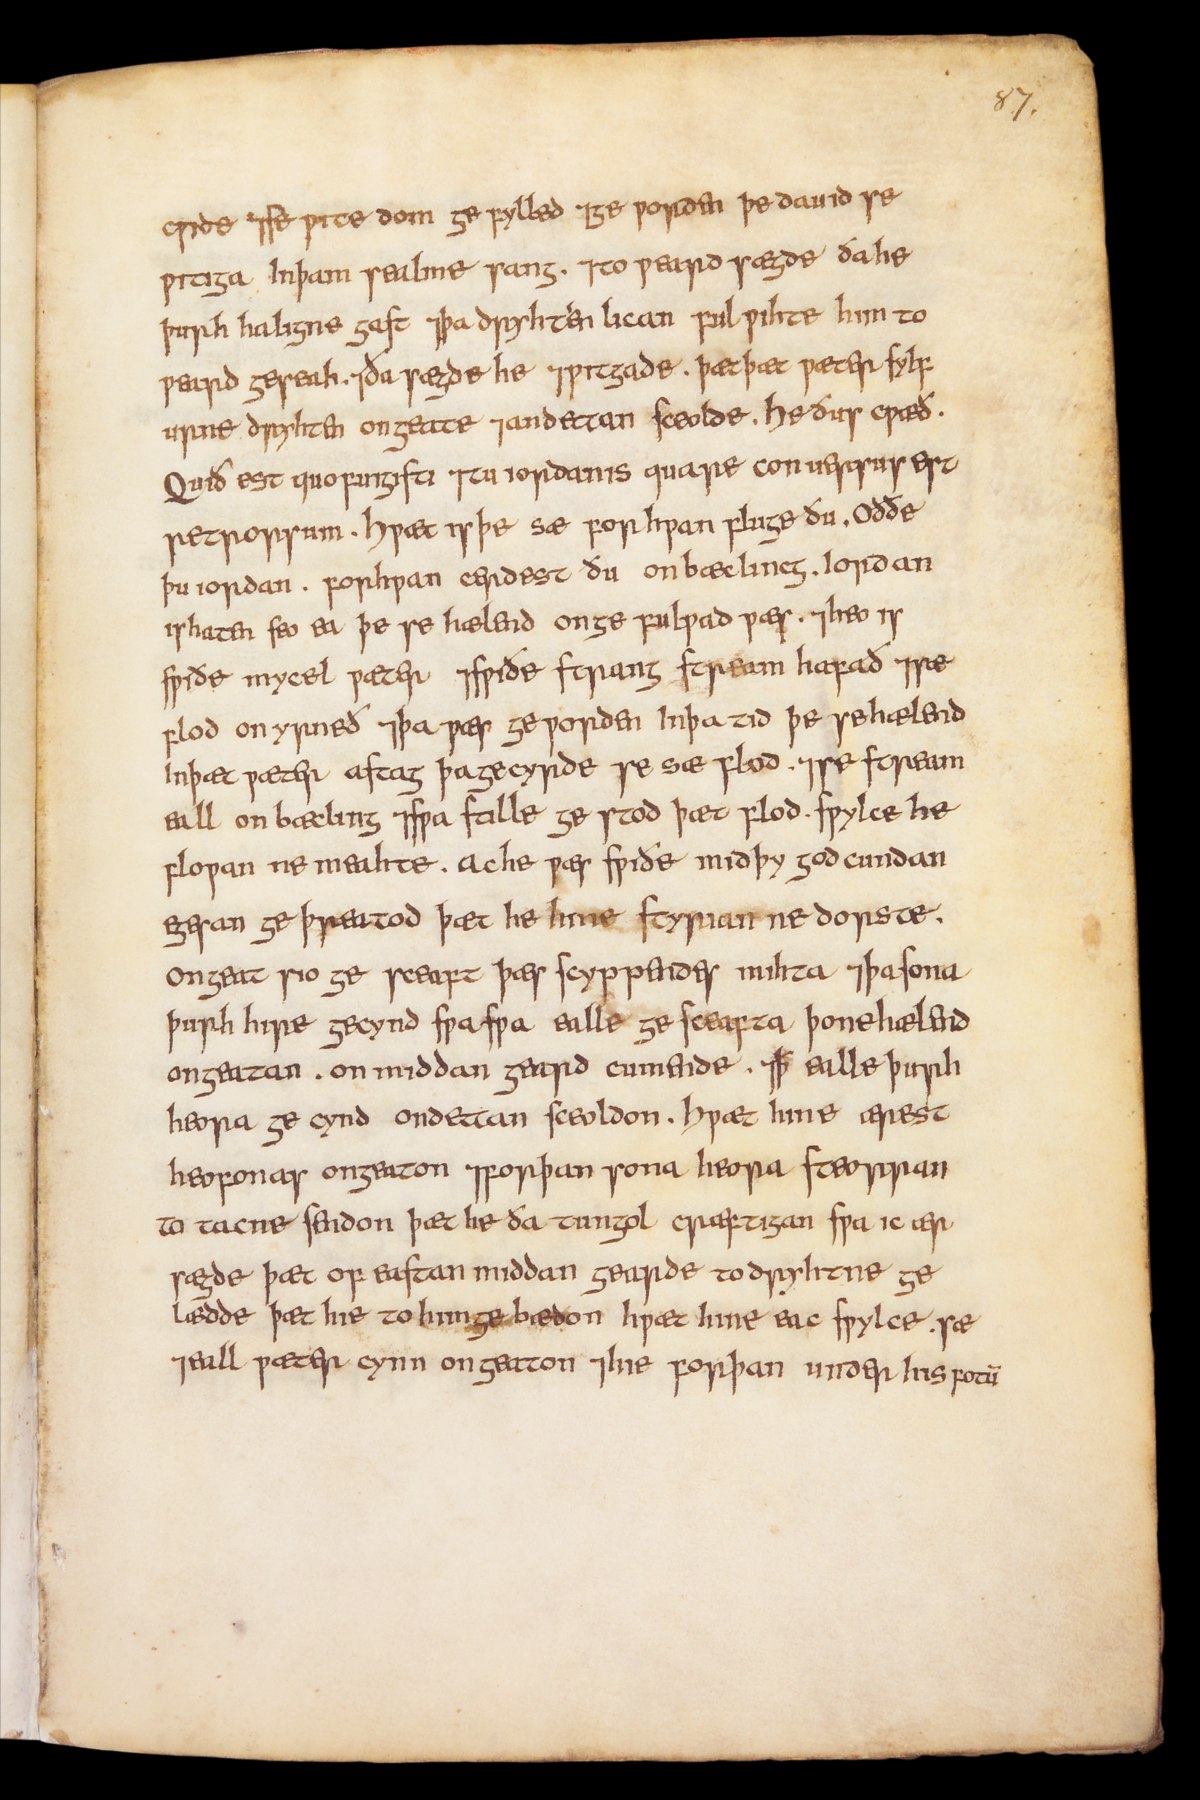 87.
cƿide ⁊se ƿite dom ge fylled ⁊ge ƿorden þe dauid se
ƿitiga Inþam sealme sang. ⁊to ƿeard sægde ða he
þurh haligne gast ⁊þa dryhtenlican fulƿihte him to
ƿeard geseah. ⁊ða sægde he ⁊ƿitgade. þætþæt ƿæter sylf
urne dryhten ongeate ⁊andettan sceolde. He ðus cƿæð.
Quid est quo fugisti ⁊tu iordanis quare conuersus est
retrorsum. Hƿæt is þe sæ forhƿan fluge ðu. Oððe
þu iordan. forhƿan cerdest ðu onbæclincg. Iordan
is haten seo ea þe se hælend onge fulƿad ƿæs. ⁊heo is
sƿiðe mycel ƿæter ⁊sƿiðe strang stream hafað ⁊sæ
flod on yrneð ⁊þa ƿæs ge ƿorden Inþa tid þe se hælend
Inþæt ƿæter astag þa gecyrde se sæ flod. ⁊se stream
eall on bæcling ⁊sƿa stille ge stod þæt flod. sƿylce he
floƿan ne meahte. Ac he ƿæs sƿiðe mid þy god cundan
egesan ge þreatod þæt he hine styrian ne dorste.
Ongeat sio ge sceaft þæs scyppendes mihta ⁊þa sona
þurh hire gecynd sƿa sƿa ealle ge sceafta þone hælend
ongeatan. on middan geard cumende. ⁊ꝥ ealle þurh
heora ge cynd ondettan sceoldon. Hƿæt hine ærest
heofonas ongeaton ⁊forþan sona heora steorran
to tacne sendon þæt he ða tungol cræftigan sƿa ic ær
sægde þæt of eastan middan gearde to dryhtne ge
lædde þæt hie to him ge bædon hƿæt hine eac sƿylce. sæ
⁊eall ƿæter cynn ongeaton ⁊hie forþan under his fotū